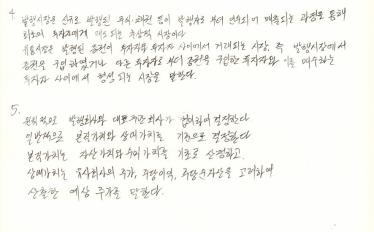 4
발행시장은 신규로 발행된 주식·채권 등이 발행자로부터 인수되어 매출되는 과정을 통해
최초의 투자자에게 매도되는 추상적 시장이다
유통시장은 발행된 증권이 투자자와 투자자 사이에서 거래되는 시장. 즉 발행시장에서
증권을 구입하였거나 다른 투자자로부터 증권을 구입한 투자자와 이를 매수하는
투자자 사이에서 형성되는 시장을 말한다.
5.
원칙적으로 발행회사와 대표주관회사가 협의하여 결정한다
일반적으로 본질가치와 상대가치를 기준으로 결정한다
본질가치는 자산가치와 수익가치를 기초로 산정하고,
상대가치는 유사회사의 주가, 주당이익, 주당순자산을 고려하여
산출한 예상 주가를 말한다.